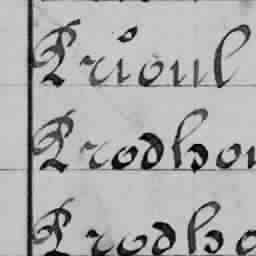 Prioul
Prodhou
Prodho